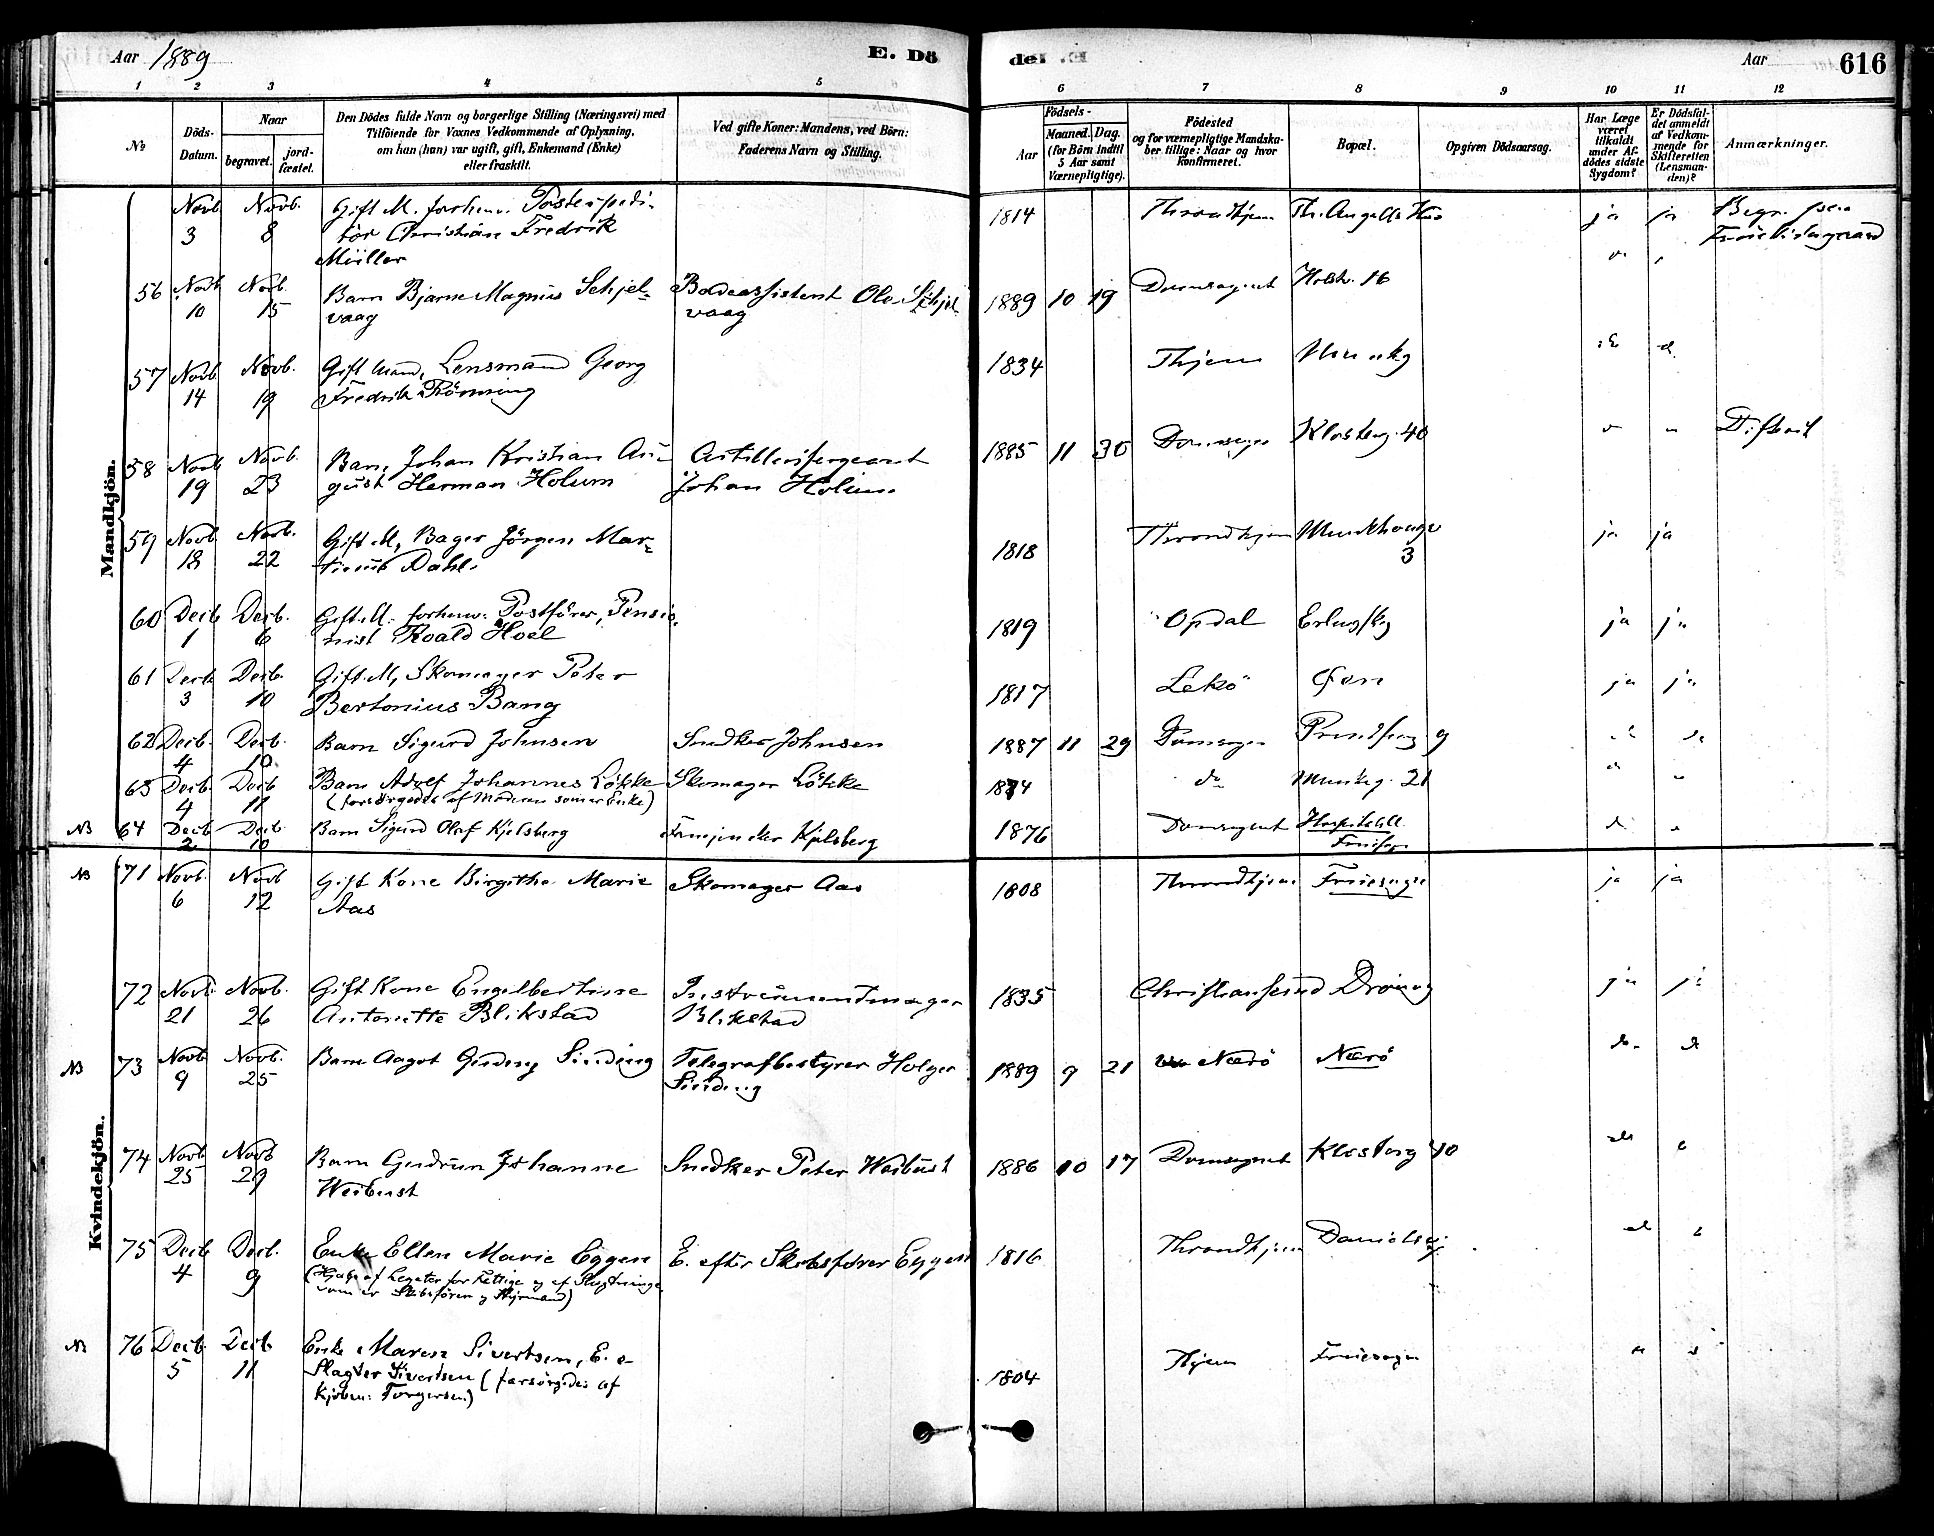 Aar 1889
E. Dö
del E.
Aar
616
1 2 3 4 5 6 7 8 9 10 11 12
No
Döds-Datum.
Naar
begravet.
jord-fæstet.
Den Dödes fulde Navn og borgerlige Stilling (Næringsvei) med
Tilföiende for Voxnes Vedkommende af Oplysning,
om han (hun) var ugift, gift, Enkemand (Enke)
eller fraskilt.
Ved gifte Koner: Mandens, ved Börn:
Faderens Navn og Stilling.
Födsels-
Aar
Maaned. Dag.
(for Börn indtil
5 Aar samt
Værnepligtige).
Födested
og for værnepligtige Mandska-
ber tillige: Naar og hvor
Konfirmeret.
Bopæl.
Opgiven Dödsaarsag.
Har Læge
været
tilkaldt
under Af-
dødes sidste
Sygdom?
Er Dødsfal-
det anmeldt
af Vedkom-
mende for
Skifteretten
(Lensman-
den)?
Anmærkninger.
Mandkjön.
Novb. Novb. Gift M. forhenv. Postexpedi- 1814 Throndhjem Th. Angells Hus ja ja Begr. paa
3 8 tör Christian Fredrik
Müller
56 Novb Novb. Barn Bjarne Magnus Schjel- Ole Schjel- 1889 10 19 Domsognet 16
10 15 vaag vaag
57 Novb Novb. Gift Mand, Lensmand Georg 1834 Thjem
14 19 Fredrik Rönning
58 Novb Novb. Barn, Johan Kristian Au- Artillerisergeant 1885 11 30 Domsogn Klosterg. 40
19 23 gust Herman Holum Johan Holum
59 Novb Novb. Gift M, Bager Jörgen Mar- 1818 Throndhjem Munkhauge
18 22 tinus Dahl. 3
60 Decb Decb. Gift M. forhenv. Postförer, Pensio- 1819 Opdal ja ja
1 6 nist Roald Hoel
61 Decb Decb. Gift M, Skomager Peter 1817 Lekö ja ja
3 10 Bertonius Bang
62 Decb. Decb. Barn Sigurd Johnsen Snedker Johnsen 1887 11 29 Domsogn 9
4 10
63 Decb. Decb Barn Adolf Johannes Lökke Skomager Lökke 1874 do Munkg. 21
4 11 (forsörgedes af Moderen som er Enke)
NB 64 Decb Decb. Barn Sigurd Olaf Kjelsberg Kjelsberg 1876 Domsognet
2 10
Kvindekjön.
NB 71 Novb. Novb Gift Kone Birgitha Marie Skomager Aas 1808 Throndhjem Fruesogn ja ja
6 12 Aas
72 Novb. Novb. Gift Kone Engelbertine Instrumentmager 1835 Christiansund ja ja
21 26 Antonette Blikstad Blikstad
NB 73 Novb Novb. Barn Aagot Sinding Telegrafbestyrer Holger 1889 9 21 Nærö Nærö
9 25 Sinding
74 Novb Novb Barn Gudrun Johanne Snedker Peter Weibust 1886 10 17 Domsognet Klosterg 40
25 29 Weibust
75 Decb Decb. Enke Ellen Marie Eggen E. efter Skibsförer Eggen 1816 Throndhjem
4 9 (Hjælp af Legater for Fattige og af
som er Skibsförer og Styrmand)
NB 76 Decb. Decb Enke Maren Sivertsen, E. e 1804 Thjem Fruesogn
5 11 Slagter Sivertsen (forsörgedes af
Kjöbm: Torgersen)